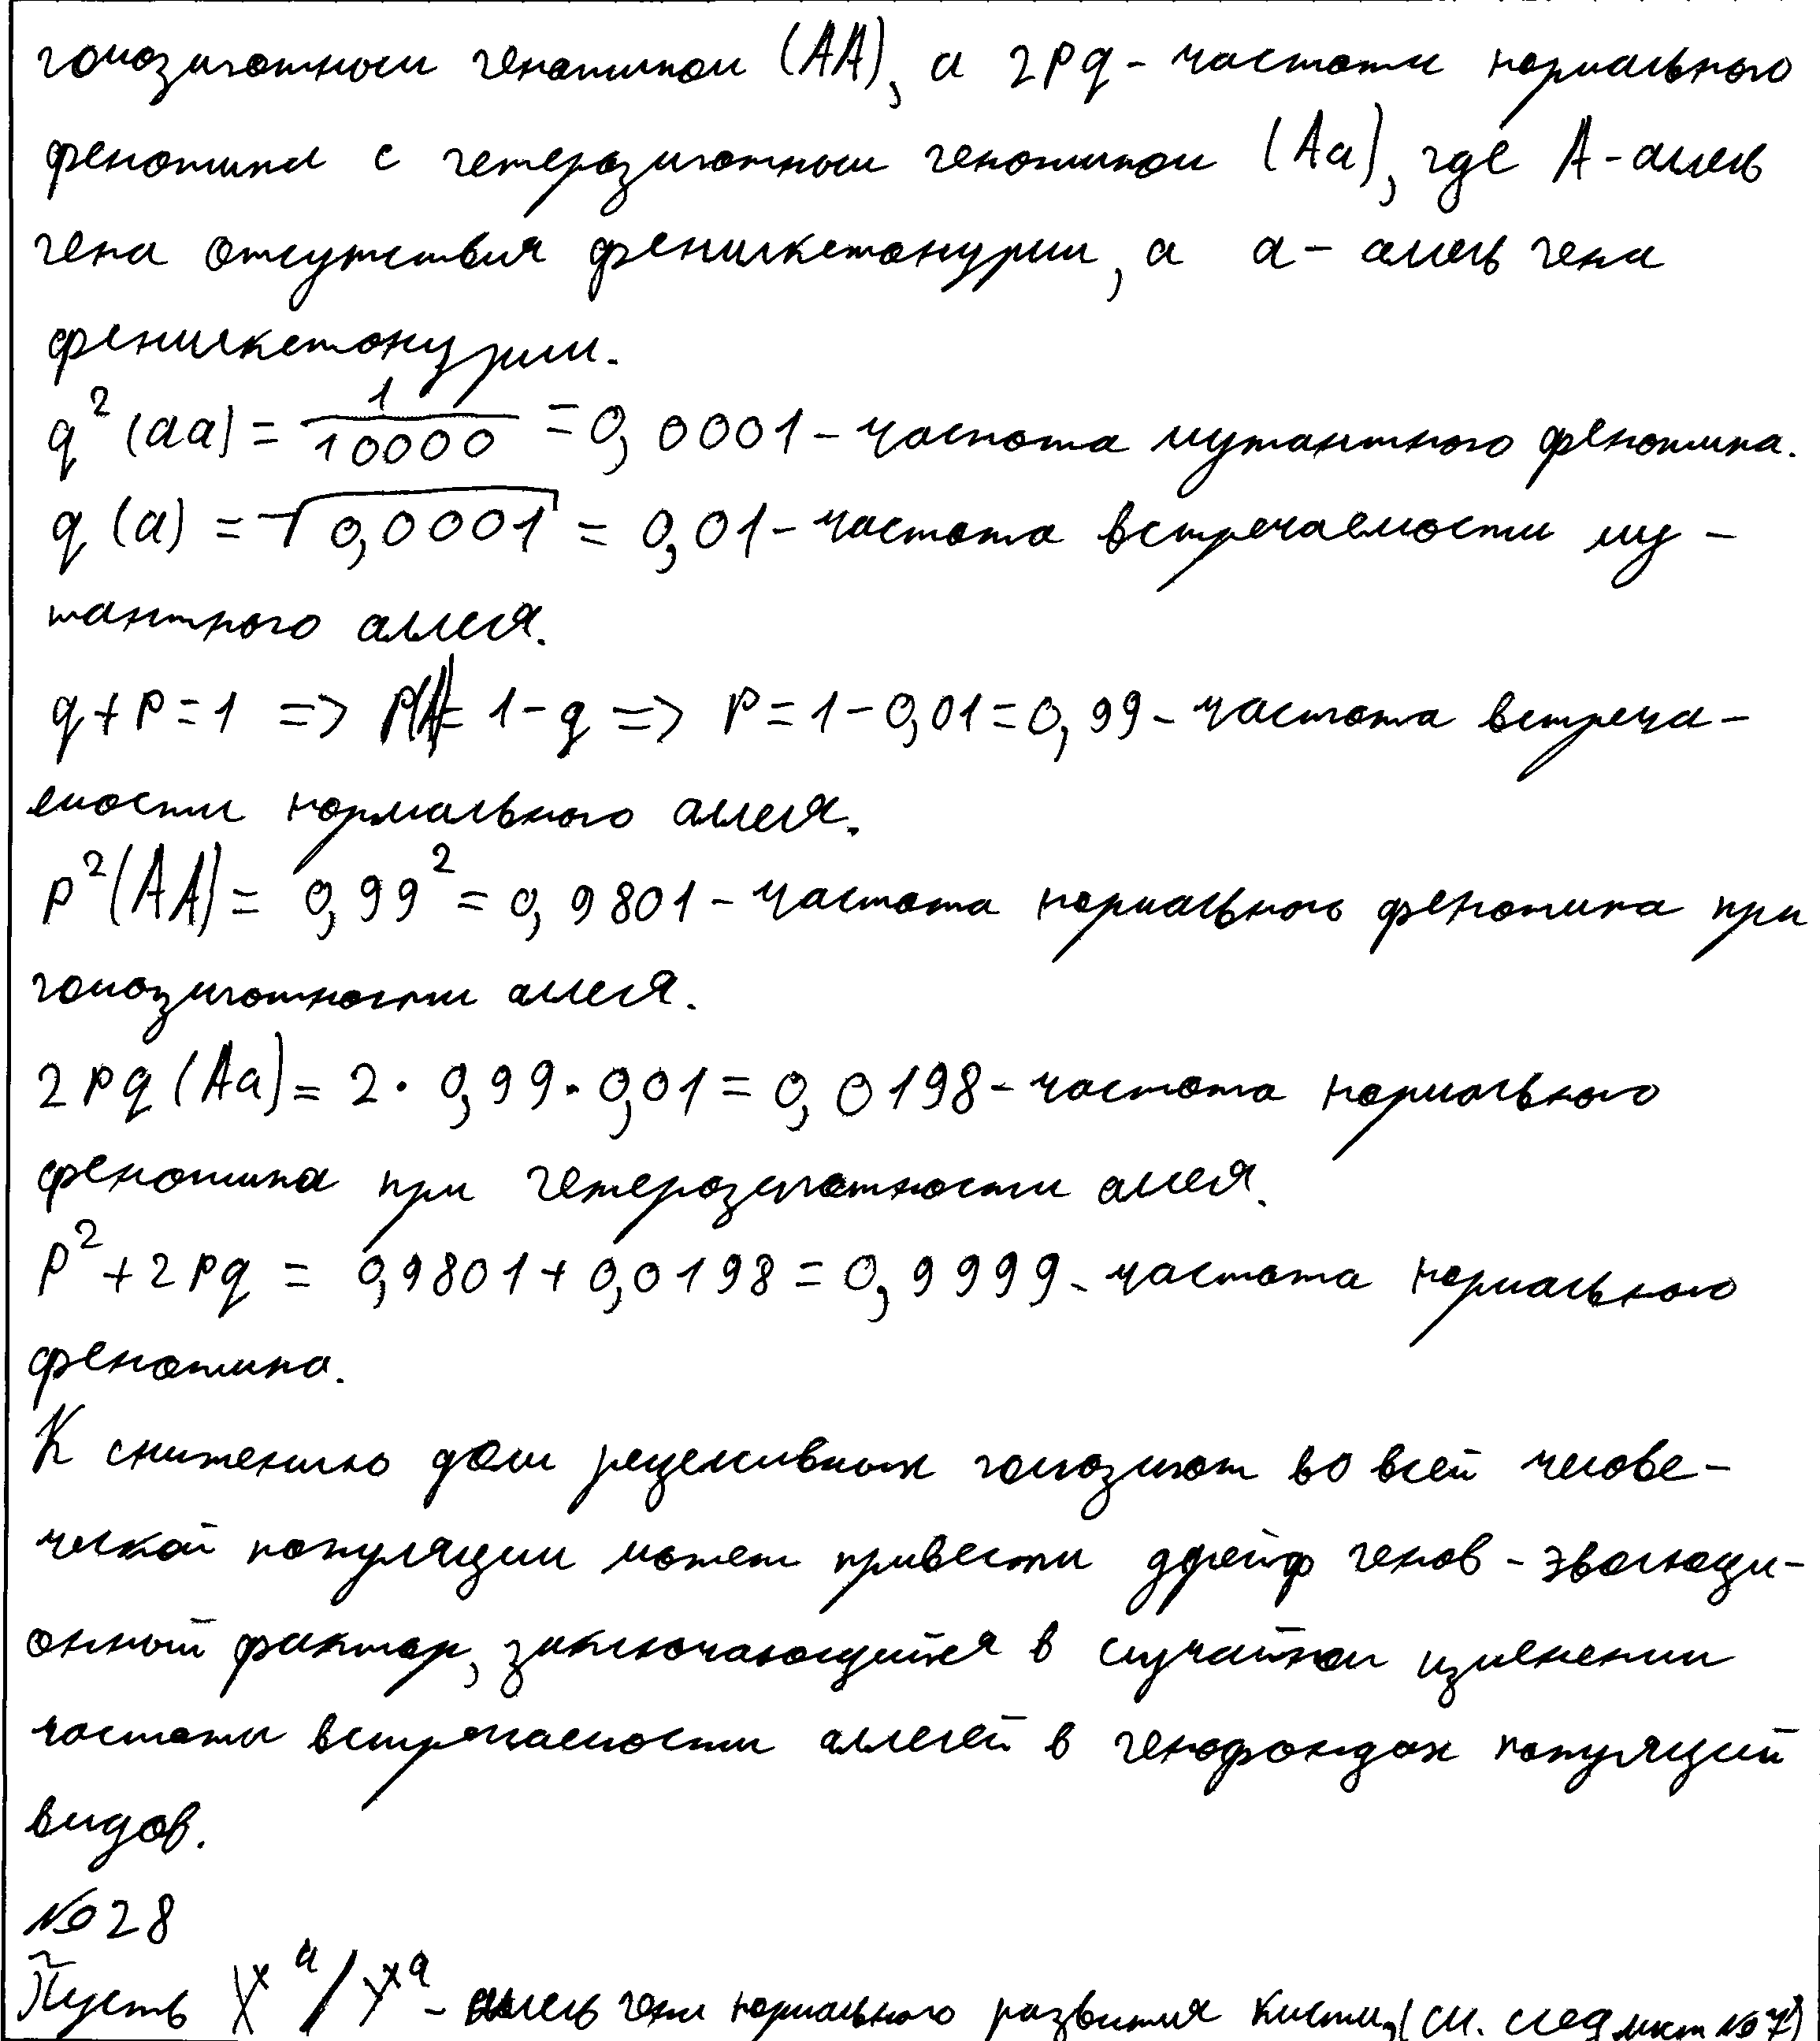 гомозиготным генотипом (AA), а 2pq - частоты нормального
фенотипа с гетерозиготным генотипом (Aa), где A - аллель
гена отсутствия фенилкетонурии, а a - аллель гена
фенилкетонурии.
q²(aa) = 1/10000 = 0,0001 - частота мутантного фенотипа.
q(a) = √0,0001 = 0,01 - частота встречаемости му-
тантного аллеля.
q+p=1 => p = 1-q => p=1-0,01=0,99 - частота встреча-
емости нормального аллеля.
p²(AA) = 0,99² = 0,9801 - частота нормального фенотипа при
гомозиготности аллеля.
2pq(Aa) = 2·0,99·0,01 = 0,0198 - частота нормального
фенотипа при гетерозиготности аллеля.
p²+2pq = 0,9801+0,0198 = 0,9999 - частота нормального
фенотипа.
К снижению доли рецессивных гомозигот во всей челове-
ческой популяции может привести дрейф генов - эволюци-
онный фактор, заключающийся в случайном изменении
частоты встречаемости аллелей в генофондах популяций
видов.
№28
Пусть Xᵃ/Yᵃ - аллель гена нормального развития кисти, (см. след лист №7)